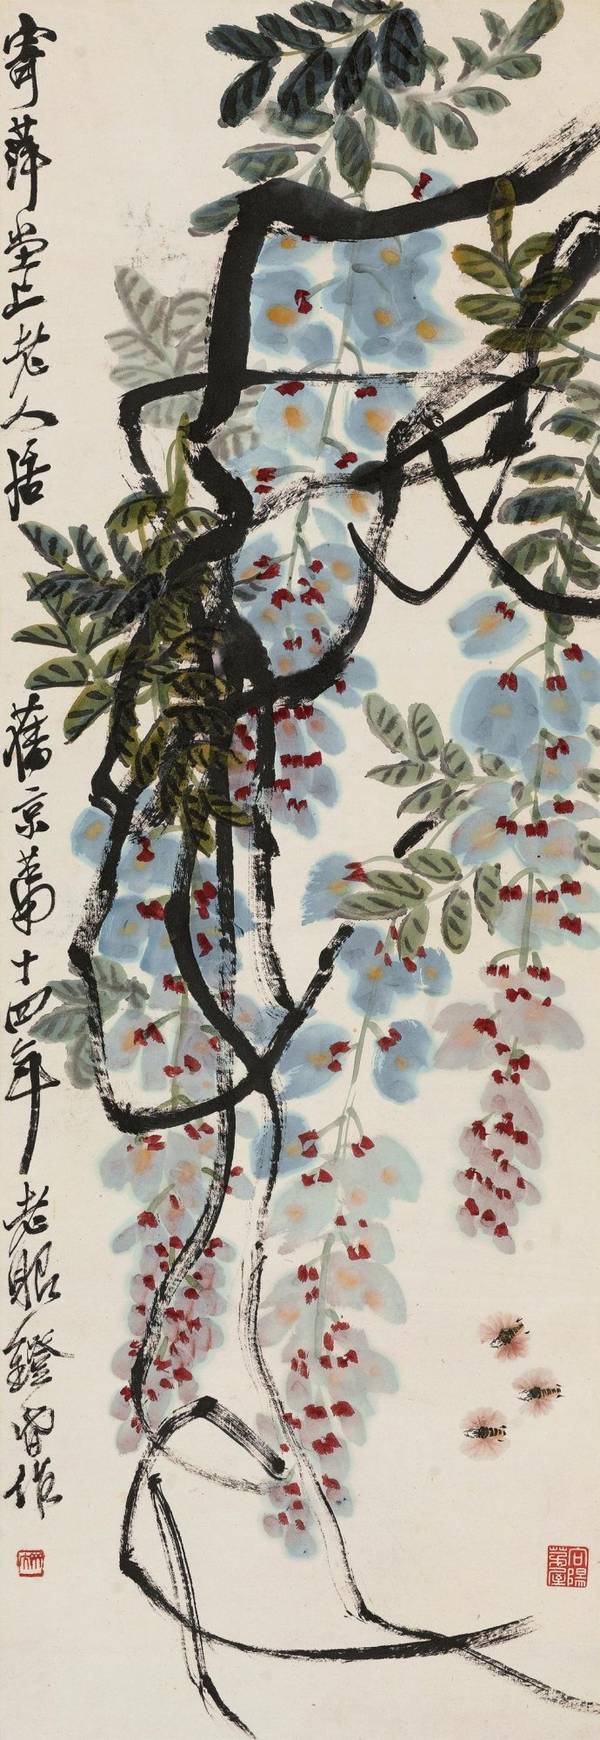 寄萍堂上老人居舊京第十四年老眼鐙昏作